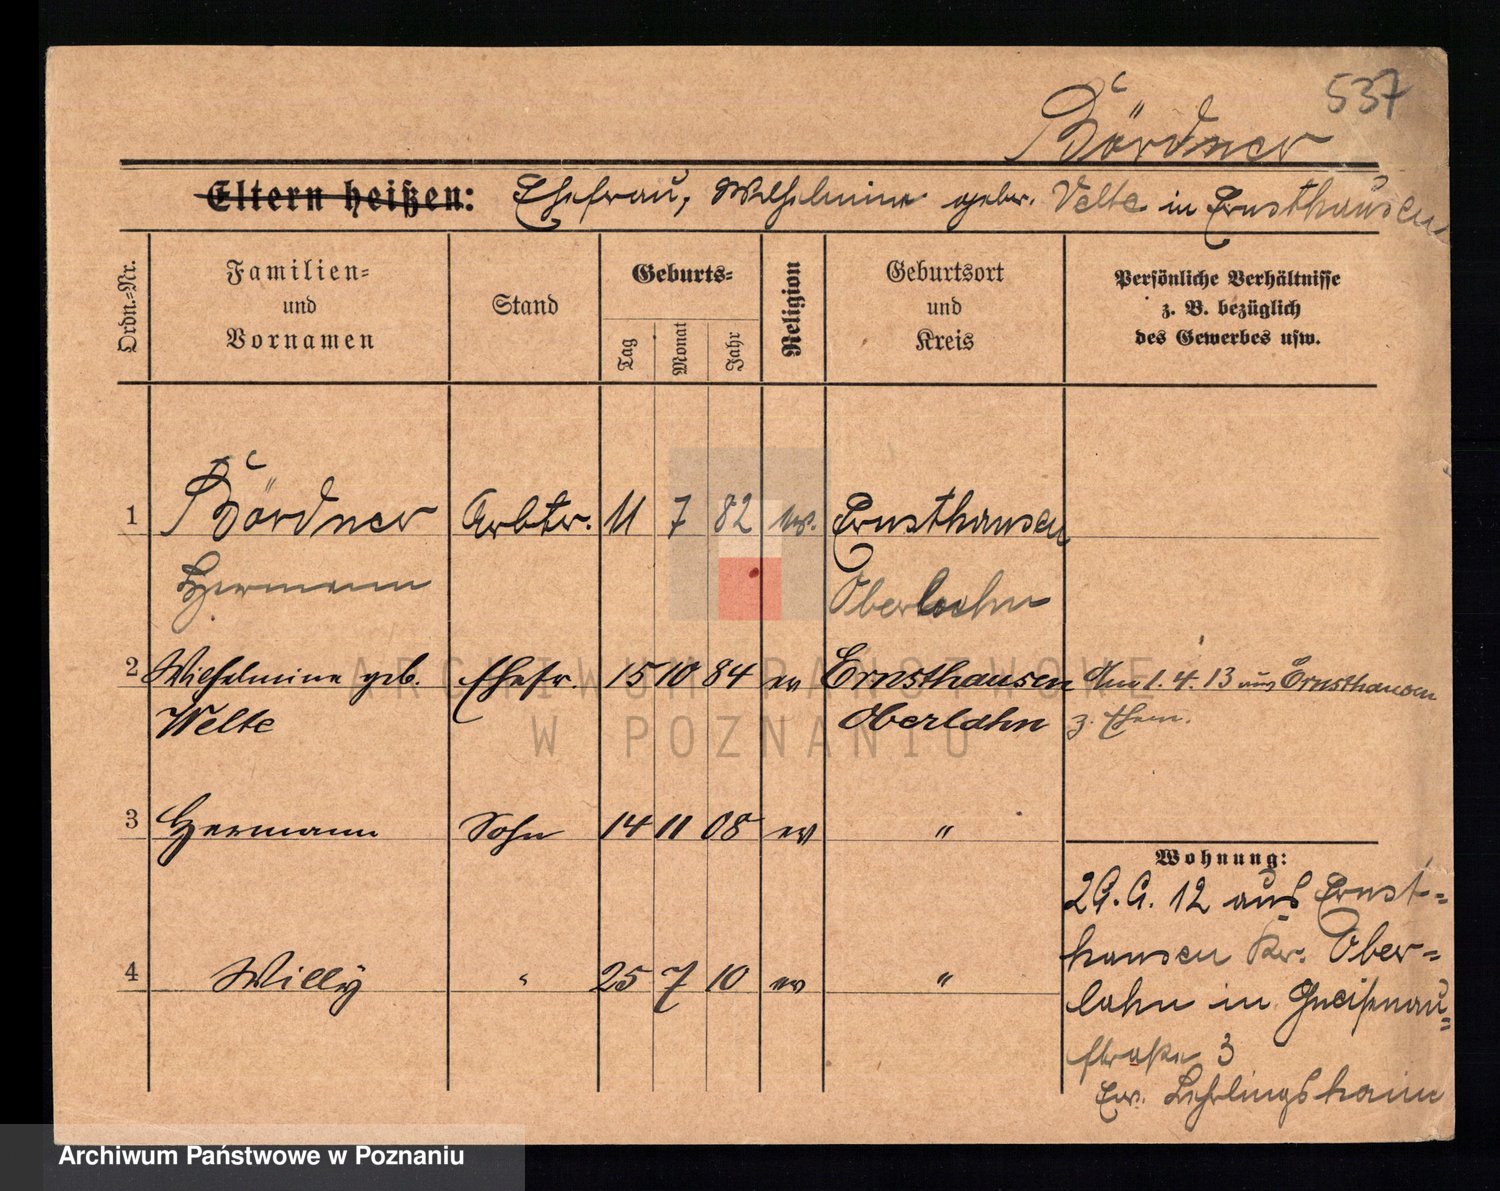 537
Bördner
Eltern heißen: Ehefrau, Wilhelmine gebr. Velte in Ernsthausen
Ordn.-Nr.
Familien-
und
Vornamen
Stand
Geburts-
Tag
Monat
Jahr
Religion
Geburtsort
und
Kreis
Persönliche Verhältnisse
z. B. bezüglich
des Gewerbes usw.
1 Bördner Arbtr. 11 7 82 ev. Ernsthausen
Hermann Oberlahn
2 Wilhelmine geb. Ehefr. 15 10 84 ev Ernsthausen Am 1. 4. 13 aus Ernsthausen
Welte Oberlahn z. Ehem.
3 Hermann Sohn 14 11 08 ev "
Wohnung:
4 Willy " 25 7 10 ev "
12 aus Ernst-
hausen Kr. Ober-
lahn in Gneisenau-
straße 3
Ev. Lehrlingsheim
ARCHIWUM PAŃSTWOWE
W POZNANIU
Archiwum Państwowe w Poznaniu